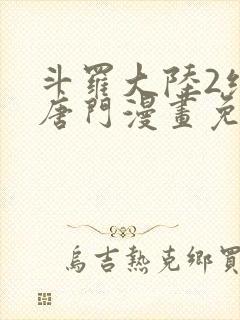 斗羅大陸2
唐門漫畫免
烏吉熱克鄉買